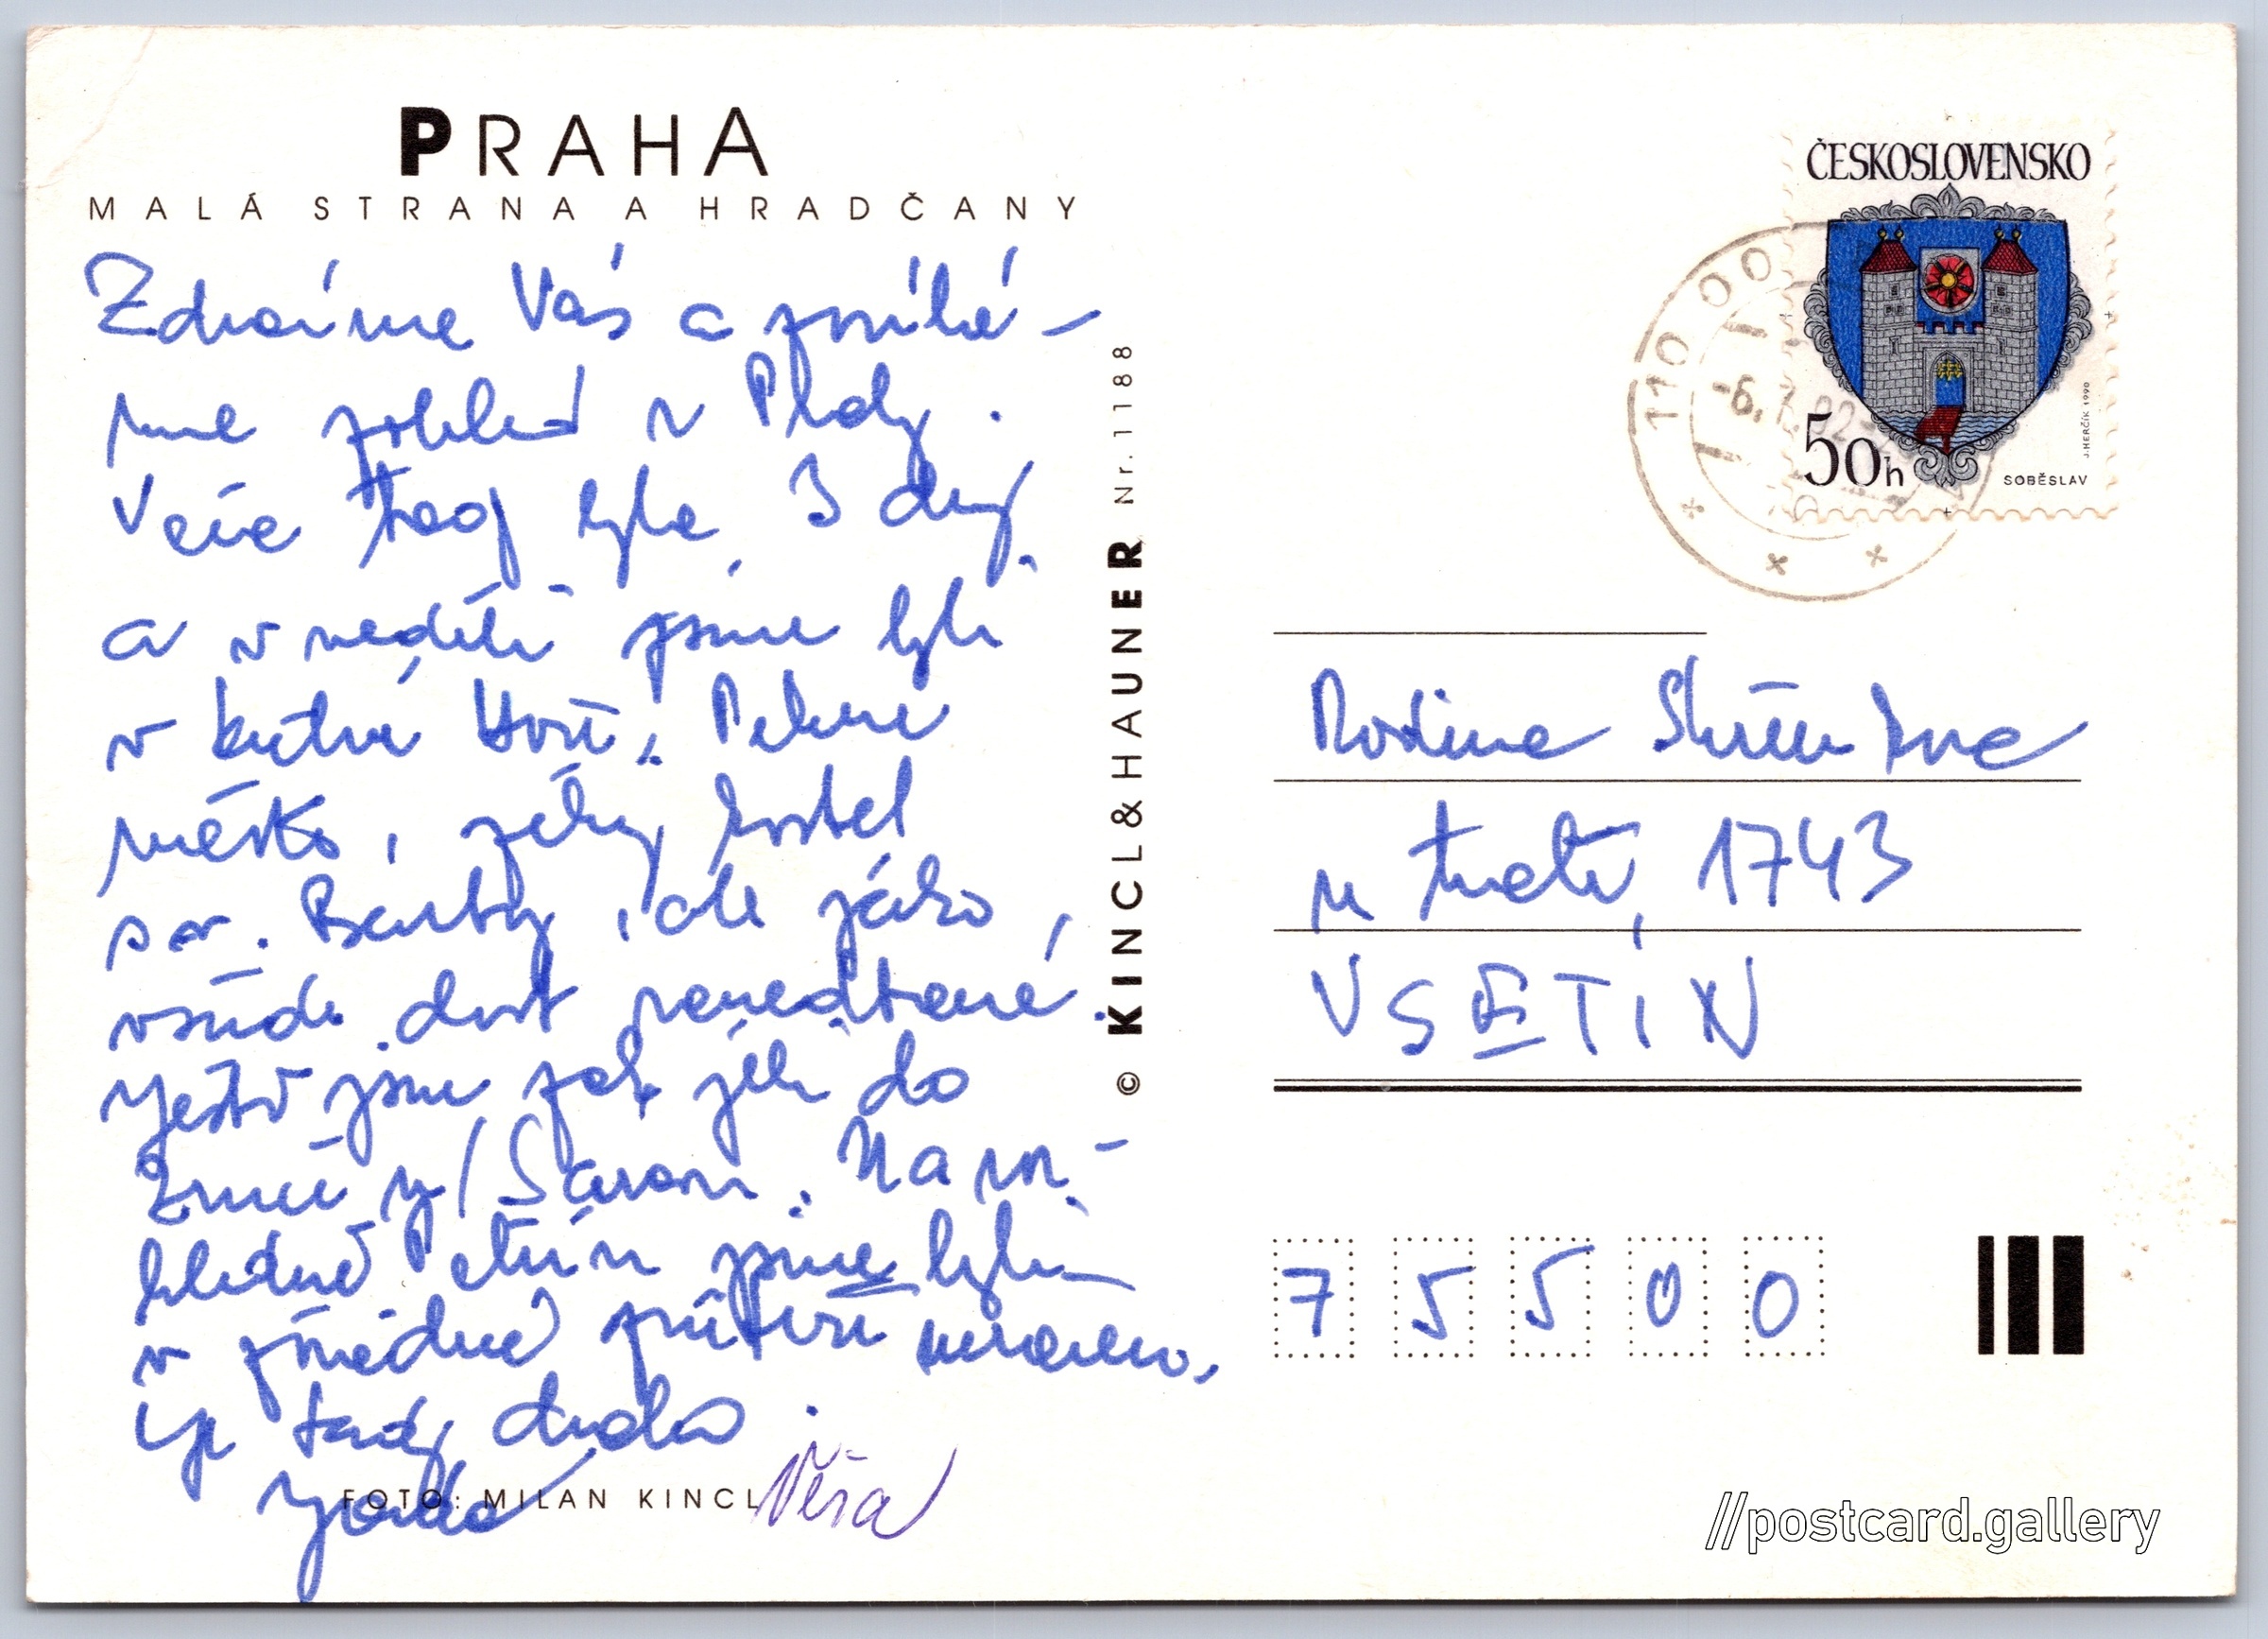 PRAHA
MALÁ STRANA A HRADČANY
Zdravíme Vás a posílá-
me pohled z Prahy.
Věra tady byla 3 dny
a v neděli jsme byli
v Kutné Hoře. Pěkné
město, pěkný kostel
sv. Barby, ale jako
všude dost zanedbané.
Ještě jsme pak jeli do
Zruče n/Sázavou. Na
jsme byli
v
je tady draho.
Jarda Věra
FOTO: MILAN KINCL
© KINCL & HAUNER Nr. 1188
ČESKOSLOVENSKO
50h
SOBĚSLAV
J. HERČÍK 1990
110 00
-6. 7. 92
Rodina
u trati 1743
VSETÍN
75500
//postcard.gallery